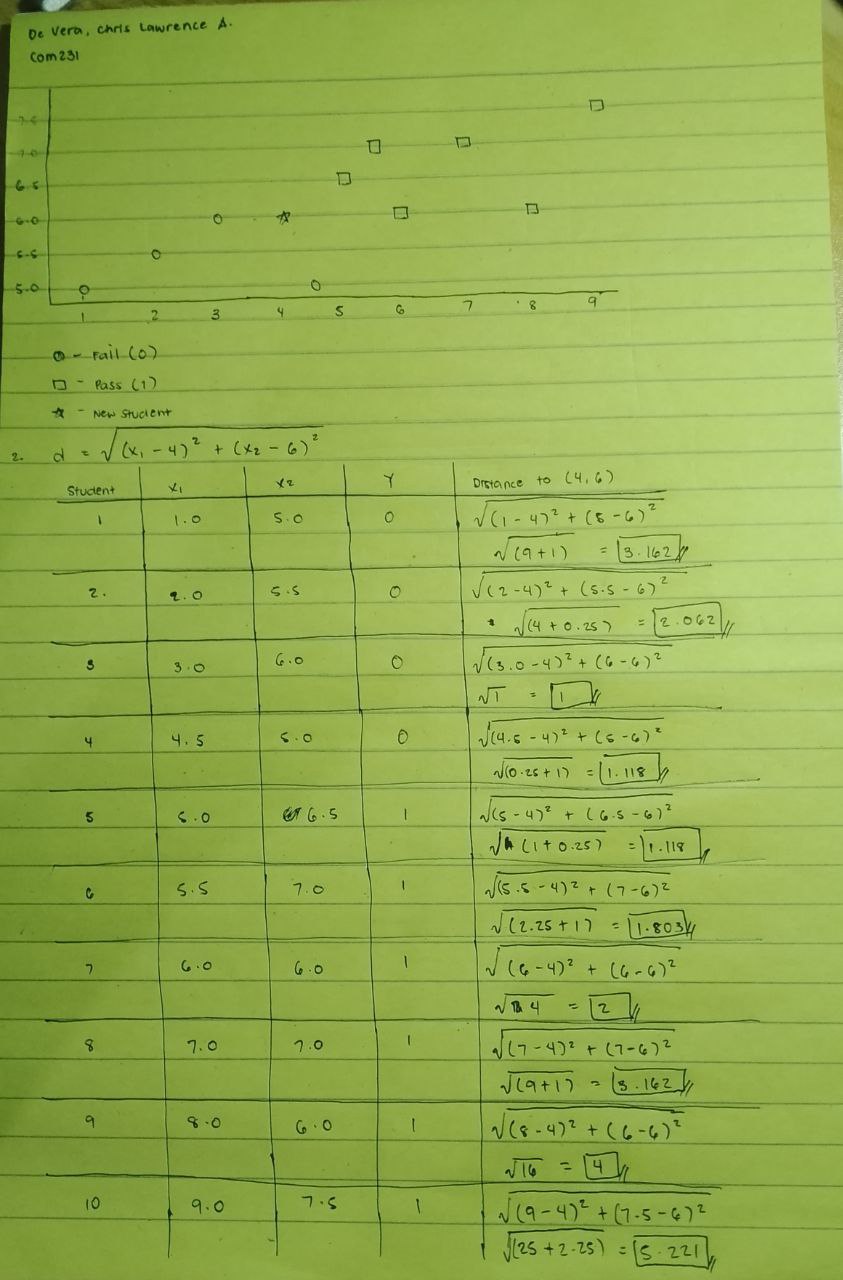 De Vera, Chris Lawrence A.
Com231
7.5
7.0
6.5
6.0
5.5
5.0
1 2 3 4 5 6 7 8 9
○ - Fail (0)
□ - Pass (1)
☆ - New Student
2. d = √(x₁ - 4)² + (x₂ - 6)²
Student x₁ x₂ Y Distance to (4,6)
1 1.0 5.0 0 √(1 - 4)² + (5 - 6)²
√(9+1) = 3.162
2. 2.0 5.5 0 √(2 - 4)² + (5.5 - 6)²
√(4 + 0.25) = 2.062
3 3.0 6.0 0 √(3.0 - 4)² + (6 - 6)²
√1 = 1
4 4.5 5.0 0 √(4.5 - 4)² + (5 - 6)²
√(0.25 + 1) = 1.118
5 5.0 6.5 1 √(5 - 4)² + (6.5 - 6)²
√(1 + 0.25) = 1.118
6 5.5 7.0 1 √(5.5 - 4)² + (7 - 6)²
√(2.25 + 1) = 1.803
7 6.0 6.0 1 √(6 - 4)² + (6 - 6)²
√4 = 2
8 7.0 7.0 1 √(7 - 4)² + (7 - 6)²
√(9+1) = 3.162
9 8.0 6.0 1 √(8 - 4)² + (6 - 6)²
√16 = 4
10 9.0 7.5 1 √(9 - 4)² + (7.5 - 6)²
√(25 + 2.25) = 5.221